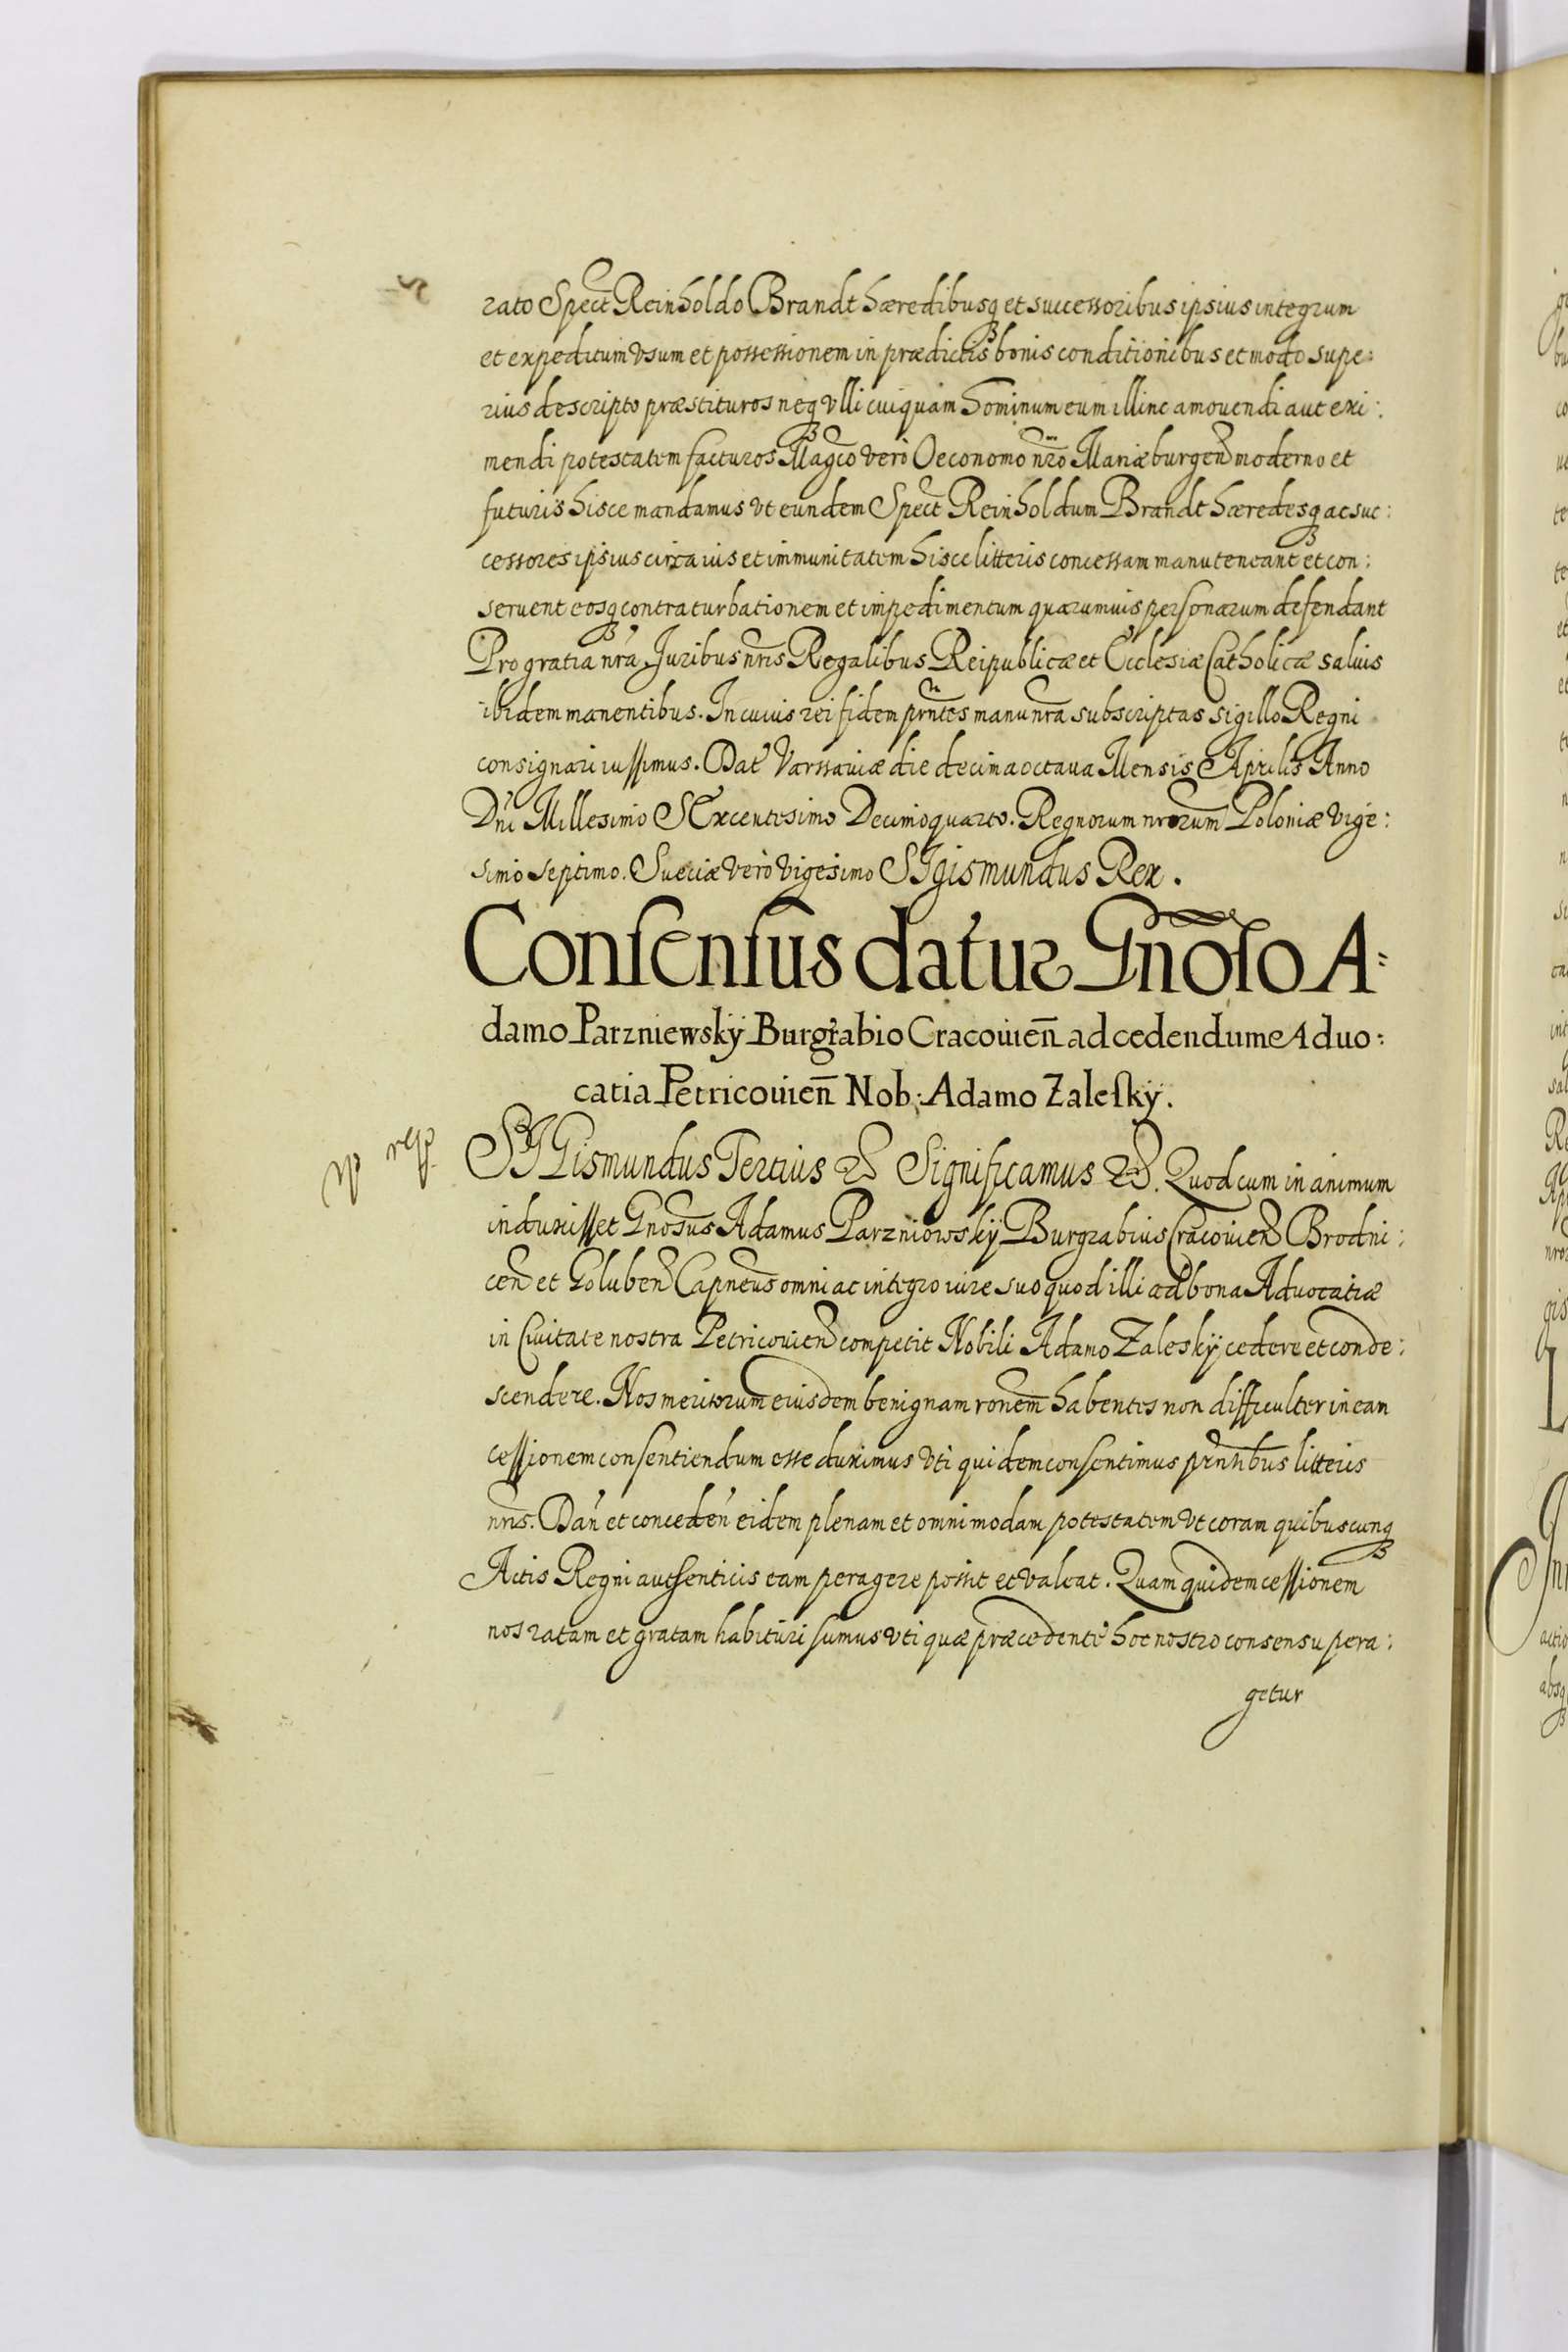 rato Spect Reinholdo Brandt hæredibusq et successoribus ipsius integrum
et expeditum vsum et possessionem in prædictis bonis conditionibus et modo supe:
rius descripto præstituros neq vlli cuiquam hominum eum illinc amouendi aut exi:
mendi potestatem facturos Magco verò Oeconomo nro Mariæburgen moderno et
futuris hisce mandamus vt eundem Spect Reinholdum Brandt hæredesq ac suc:
cessores ipsius circa ius et immunitatem hisce litteris concessam manuteneant et con:
seruent eosq contra turbationem et impedimentum quarumuis personarum defendant
Pro gratia nra Juribus nris Regalibus Reipublicæ et Ecclesiæ Catholicæ saluis
ibidem manentibus. In cuius rei fidem prntes manu nra subscriptas sigillo Regni
consignari iussimus. Dat Varssauiæ die decima octaua Mensis Aprilis Anno
Dni Millesimo SExcentesimo Decimoquarto. Regnorum nrorum Poloniæ vige:
simo septimo. Sueciæ verò vigesimo SIgismundus Rex.
Consensus datur Gnoso A:
damo Parzniewsky Burgrabio Cracouien ad cedendum e Aduo:
catia Petricouien Nob: Adamo Zalesky.
SIGismundus Tertius &c Significamus &c. Quod cum in animum
induxisset Gnosus Adamus Parzniowsky Burgrabius Cracouien Brodni:
cen et Goluben Capneus omni ac integro iure suo quod illi ad bona Aduocatiæ
in Ciuitate nostra Petricouien competit Nobili Adamo Zalesky cedere et conde:
scendere. Nos meritorum eiusdem benignam ronem habentes non difficulter in eam
cessionem consentiendum esse duximus vti quidem consentimus prntibus litteris
nris. Dan et conceden eidem plenam et omnimodam potestatem vt coram quibuscunq
Actis Regni authenticis eam peragere possit et valeat. Quam quidem cessionem
nos ratam et gratam habituri sumus vti quæ præcedente hoc nostro consensu pera:
getur